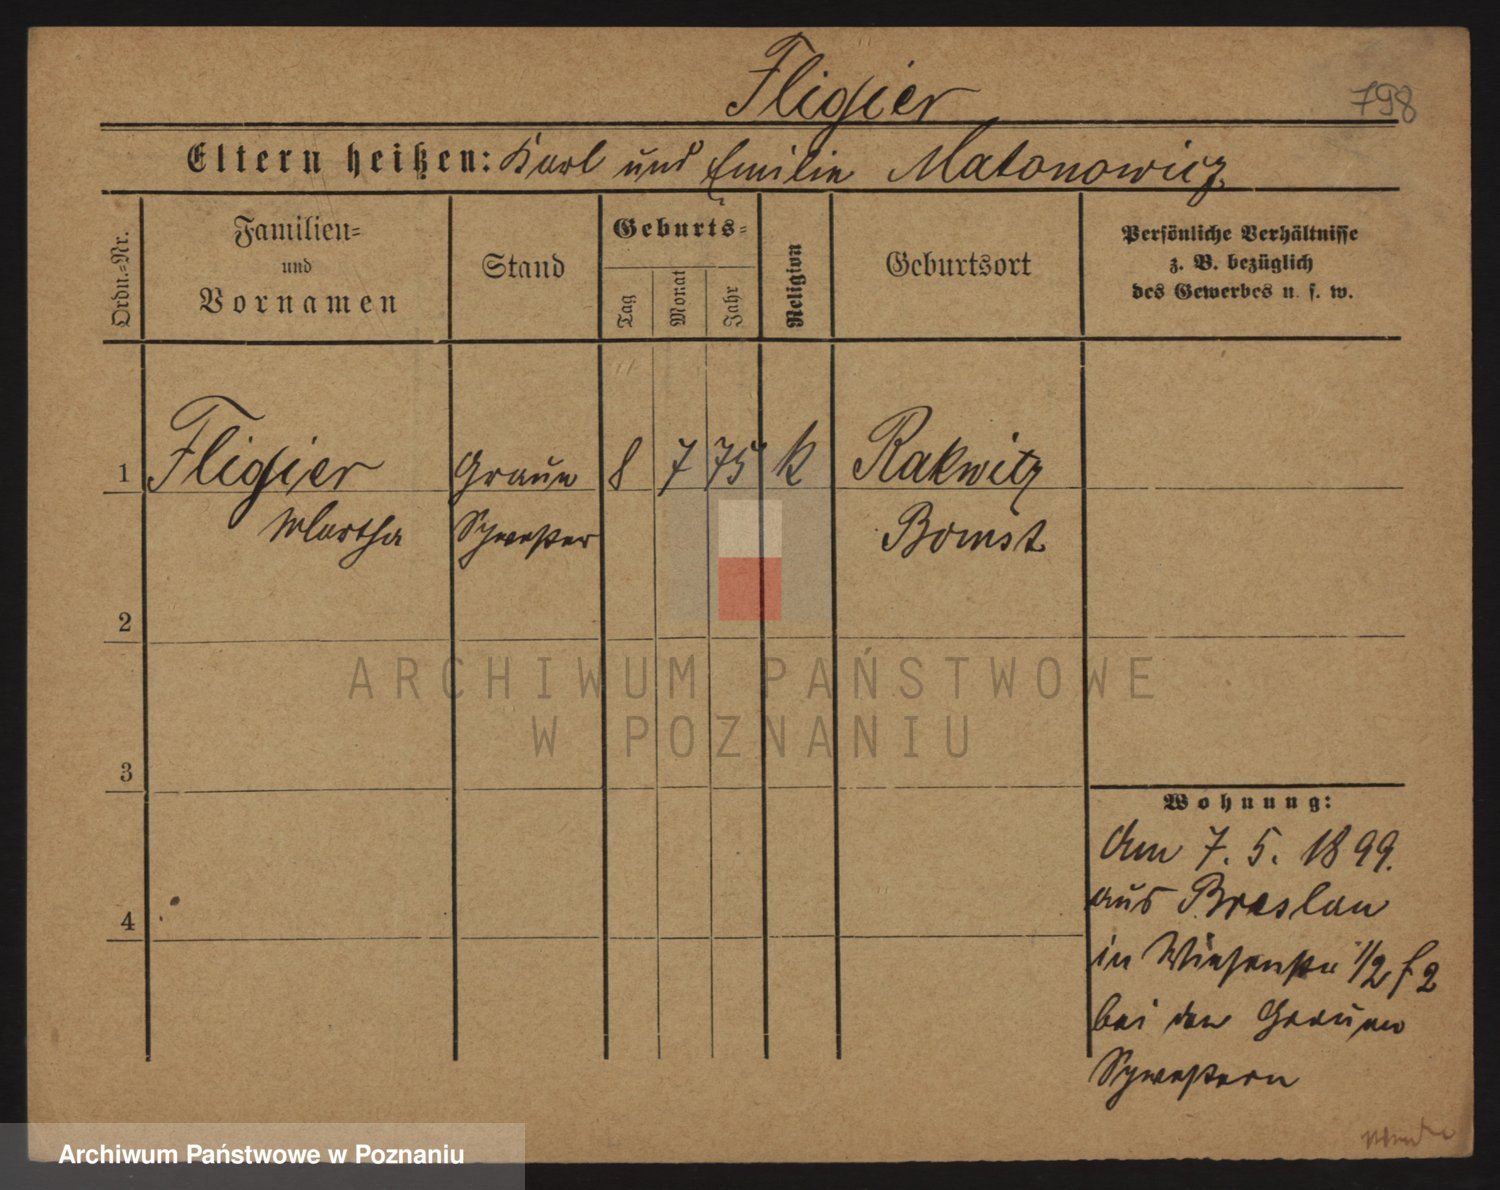 Fligier
798
Eltern heißen: Karl und Emilie Matonowicz
Ordn.-Nr.
Familien-
und
Vornamen
Stand
Geburts-
Tag
Monat
Jahr
Religion
Geburtsort
Persönliche Verhältnisse
z. B. bezüglich
des Gewerbes u. s. w.
1 Fligier Graue 8 7 75 k Rakwitz
Martha Schwester Bomst
2
ARCHIWUM PAŃSTWOWE
W POZNANIU
3
Wohnung:
Am 7. 5. 1899.
aus Breslau
4
in Wiesenstr 1/2 f 2
bei den Grauen
Schwestern
Archiwum Państwowe w Poznaniu